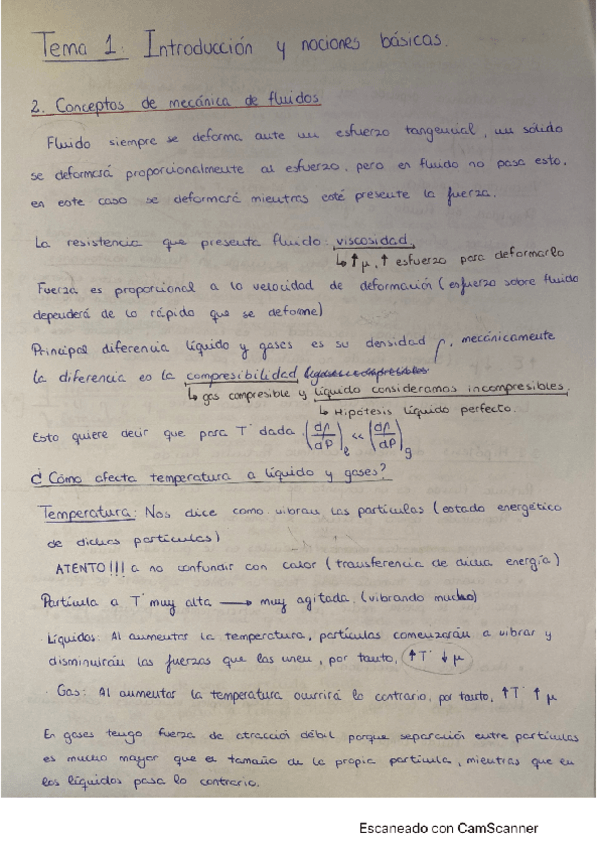 Tema 1. Introducción y nociones básicas.
2. Conceptos de mecánica de fluidos
Fluido siempre se deforma ante un esfuerzo tangencial, un sólido
se deformará proporcionalmente al esfuerzo, pero en fluido no pasa esto,
en este caso se deformará mientras esté presente la fuerza.
La resistencia que presenta fluido: viscosidad
↳ ↑ μ, ↑ esfuerzo para deformarlo
Fuerza es proporcional a la velocidad de deformación (esfuerzo sobre fluido
dependerá de lo rápido que se deforme)
Principal diferencia líquido y gases es su densidad ρ, mecánicamente
la diferencia es la compresibilidad
↳ gas compresible y líquido consideramos incompresibles.
↳ Hipótesis líquido perfecto.
Esto quiere decir que para T dada (dρ/dP)e << (dρ/dP)g
¿Cómo afecta temperatura a líquido y gases?
Temperatura: Nos dice como vibran las partículas (estado energético
de dichas partículas)
ATENTO!!! a no confundir con calor (transferencia de dicha energía)
Partícula a T muy alta → muy agitada. (vibrando mucho)
Líquidos: Al aumentar la temperatura, partículas comenzarán a vibrar y
disminuirán las fuerzas que las unen, por tanto, ↑T ↓ μ
· Gas: Al aumentar la temperatura ocurrirá lo contrario, por tanto, ↑T ↑ μ
En gases tengo fuerza de atracción débil porque separación entre partículas
es mucho mayor que el tamaño de la propia partícula, mientras que en
los líquidos pasa lo contrario.
Escaneado con CamScanner